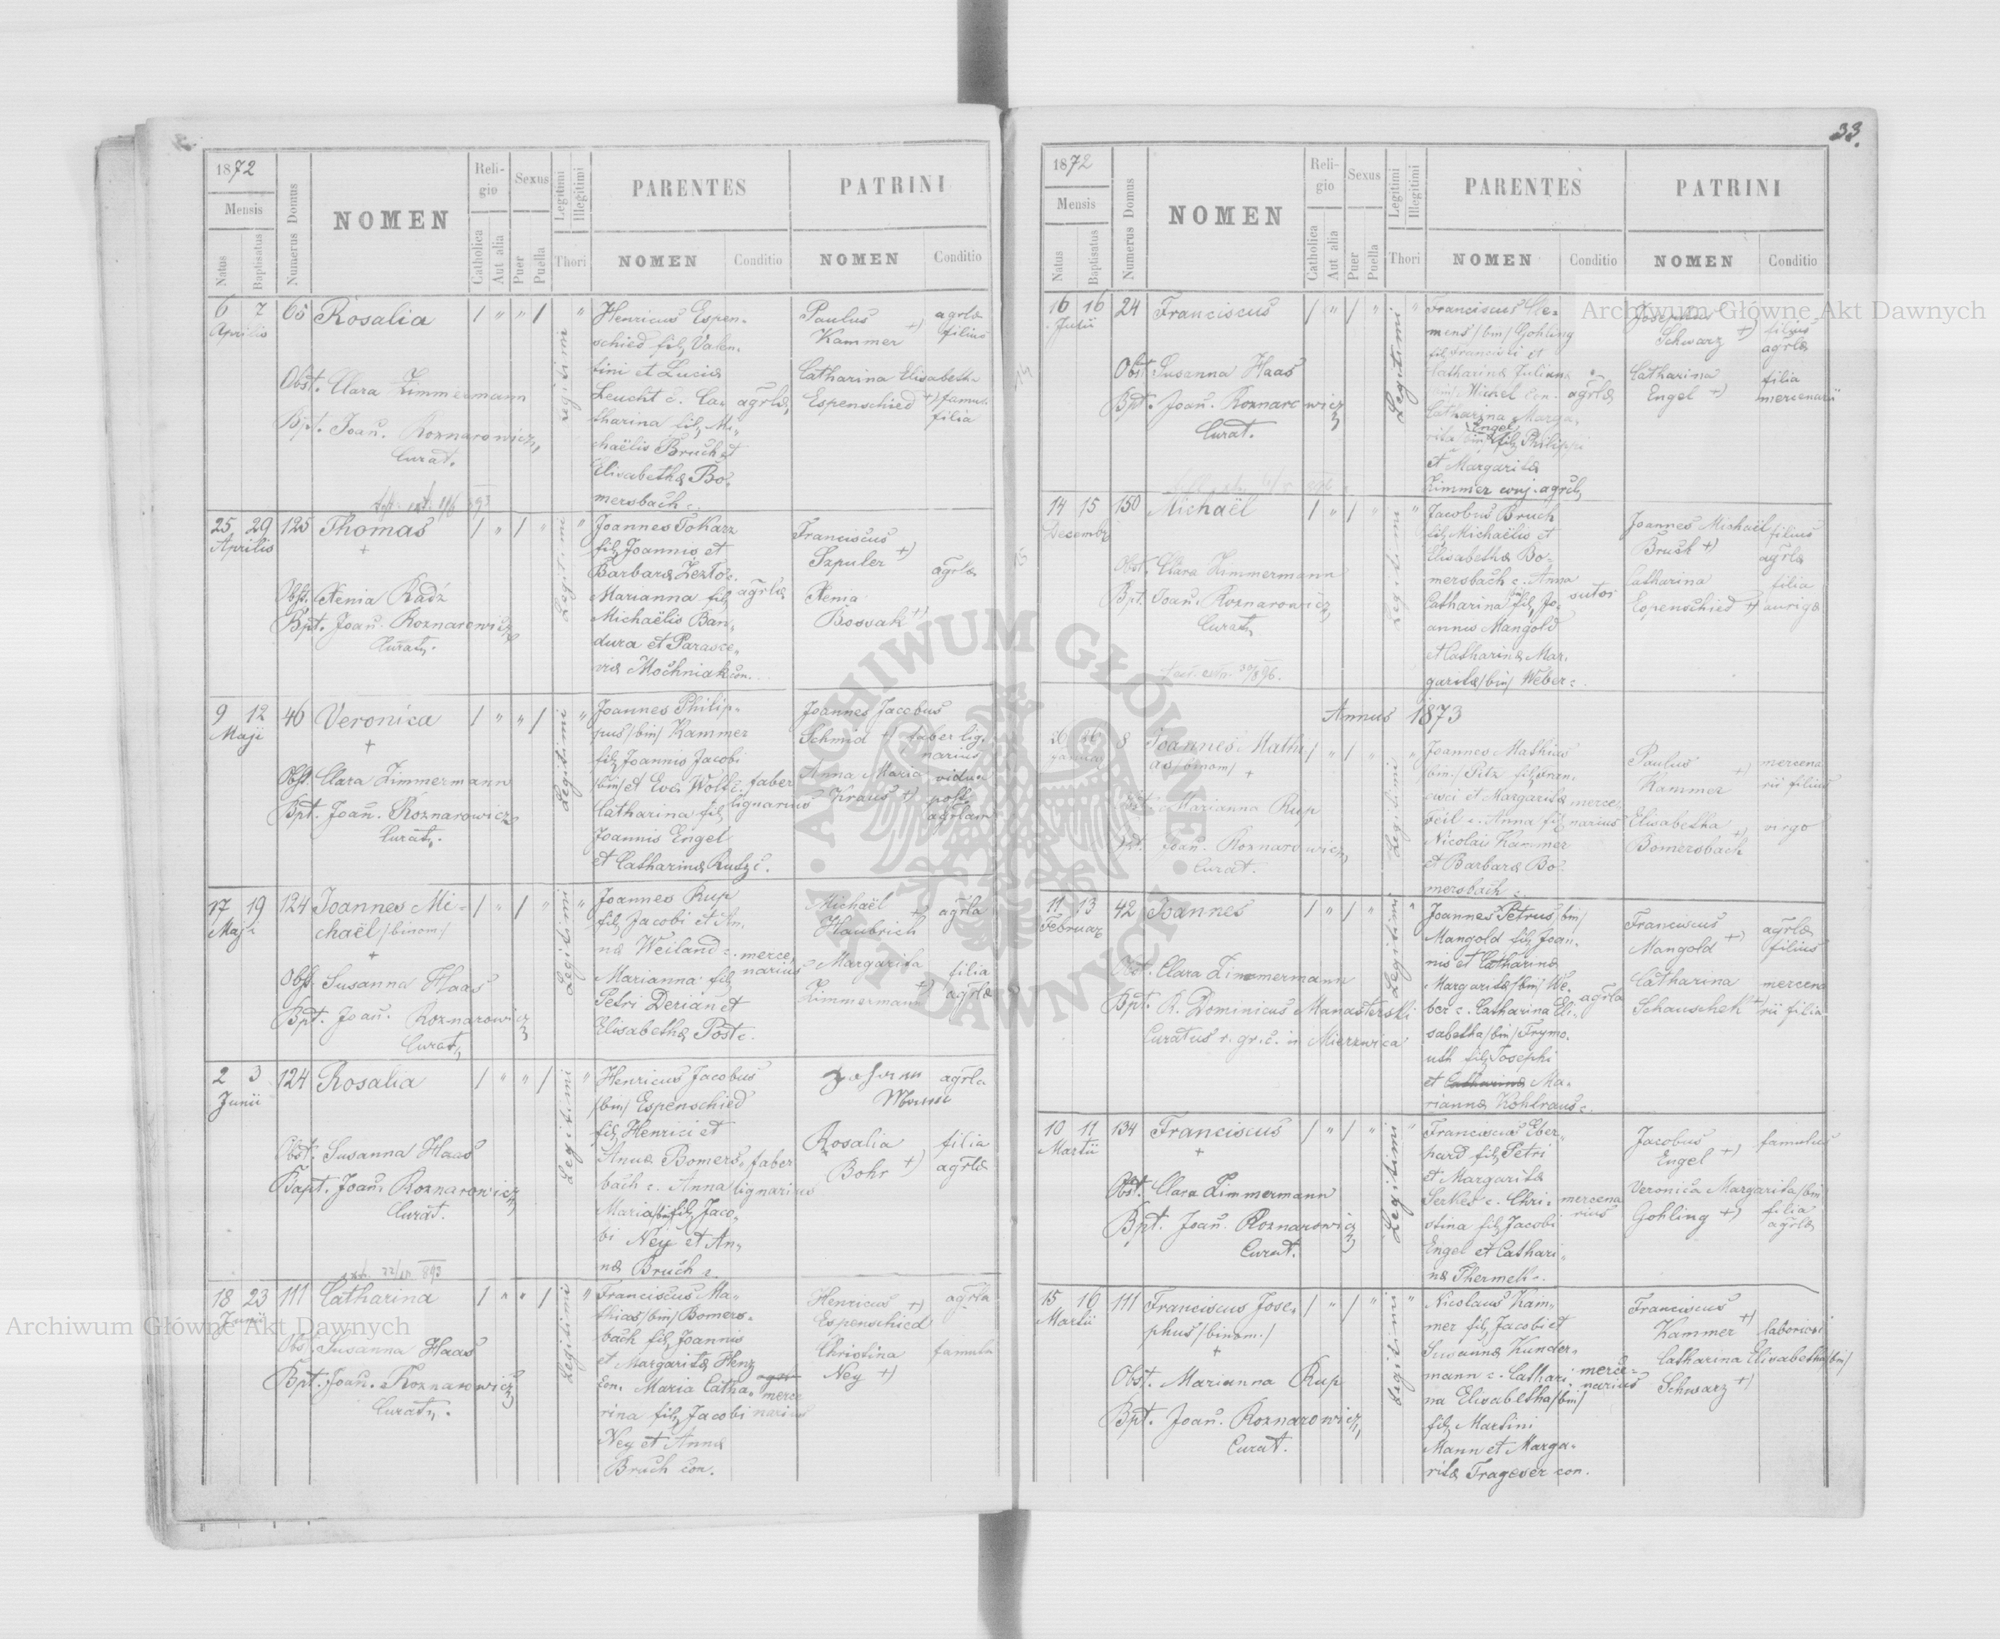 33.
1872
Mensis
Natus
Baptisatus
Numerus Domus
NOMEN
Reli-
gio
Catholica
Aut alia
Sexus
Puer
Puella
Legitimi
Illegitimi
Thori
PARENTES
NOMEN
Conditio
PATRINI
NOMEN
Conditio
6 7 65 Rosalia
Aprilis
Obst. Clara Zimmermann
Bpt. Joan. Roznarowicz
Curat.
legitimi
Henricus Espen-
schied fil. Valen-
tini et Lucia
Leucht c. Ca-
tharina fil. Mi-
chaëlis Bruch et
Elisabetha Bo-
mersbach c.
agrla
Paulus
Kammer +)
agrla
filius
Catharina Elisabetha
Espenschied +) famu.
filia
25 29 125 Thomas
Aprilis
+
Obst. Xenia Radz
Bpt. Joan. Roznarowicz
Curat.
Legitimi
Joannes Tokarz
fil. Joannis et
Barbara
Marianna fil.
Michaëlis Ban-
dura et Parasce-
via Mochniak con.
agrla
Franciscus
Szpuler +)
agrla
Xenia
Kossak +)
9 12 46 Veronica
Maji
+
Obst. Clara Zimmermann
Bpt. Joan. Roznarowicz
Curat.
Legitimi
Joannes Philip-
pus /bin/ Kammer
fil. Joannis Jacobi
/bin/ et Eva Wolf c.
Catharina fil.
Joannis Engel
et Catharina Rutz c.
faber
lignarius
Joannes Jacobus
Schmid +) faber lig-
narius
Anna Maria vidua
Kraus +) post
agrlam
17 19 124 Joannes Mi-
Maji
chaël /binom/
+
Obst. Susanna Haas
Bpt. Joan. Roznarowicz
Curat.
Legitimi
Joannes Rup
fil. Jacobi et An-
na Weiland c.
Marianna fil.
Petri Derian et
Elisabetha Post c.
merce-
narius
Michaël
Haubrich +)
agrla
Margarita
Zimmermann +)
filia
agrla
2 3 124 Rosalia
Junii
Obst. Susanna Haas
Bapt. Joan. Roznarowicz
Curat.
Legitimi
Henricus Jacobus
/bin/ Espenschied
fil. Henrici et
Anna Bomers-
bach c. Anna
Maria /bin/ fil. Jaco-
bi Ney et An-
na Bruch c.
faber
lignarius
Johann
agrla
Rosalia
Bohr +)
filia
agrla
18 23 111 Catharina
Junii
Obs. Susanna Haas
Bpt. Joan. Roznarowicz
Curat.
Legitimi
Franciscus Ma-
thias /bin/ Bomers-
bach fil. Joannis
et Margarita Henz
con. Maria Catha-
rina fil. Jacobi
Ney et Anna
Bruch con.
merce
narius
Henricus +)
Espenschied
agrla
Christina
Ney +)
famula
1872
Mensis
Natus
Baptisatus
Numerus Domus
NOMEN
Reli-
gio
Catholica
Aut alia
Sexus
Puer
Puella
Legitimi
Illegitimi
Thori
PARENTES
NOMEN
Conditio
PATRINI
NOMEN
Conditio
16 16 24 Franciscus
Julii
Obst. Susanna Haas
Bpt. Joan. Roznarowicz
Curat.
Legitimi
Franciscus Cle-
mens /bin/ Gohling
fil. Francisci et
Catharina Juliana
Michel con.
Catharina Marga-
Engel
rita /bin/ fil. Philippi
et Margarita
Zimmer conj. agrla
agrla
Josephus
Schwarz +)
filius
agrla
Catharina
Engel +)
filia
mercenarii
14 15 150 Michaël
Decembr
Obst. Clara Zimmermann
Bpt. Joan. Roznarowicz
Curat.
Legitimi
Jacobus Bruch
fil. Michaëlis et
Elisabetha Bo-
mersbach c. Anna
Catharina fil. Jo-
annis Mangold
et Catharina Mar-
garita /bin/ Weber c.
sutor
Joannes Michaël
Bruch +)
filius
agrla
Catharina
Espenschied +)
filia
auriga
Annus 1873
26 26 8 Joannes Mathi-
Januar
as /binom/ +
Obst. Marianna Rup
Bpt. Joan. Roznarowicz
Curat.
Legitimi
Joannes Mathias
/bin/ Pitz fil. Fran-
cisci et Margarita
Beil c. Anna fil.
Nicolai Kammer
et Barbara Bo-
mersbach c.
merce-
narius
Paulus
Kammer +)
mercena
rii filius
Elisabetha
Bomersbach +)
virgo
11 13 42 Joannes
Februar
Obst. Clara Zimmermann
Bpt. R. Dominicus Manasterski
Curatus r. gr. c. in Mierzwica
Legitimi
Joannes Petrus /bin/
Mangold fil. Joan-
nis et Catharina
Margarita /bin/ We-
ber c. Catharina Eli-
sabetha /bin/ Frymo-
uth fil. Josephi
et Catharina Ma-
rianna Kohlraus c.
agrla
Franciscus
Mangold +)
agrla
filius
Catharina
Schauschek +)
mercena
rii filia
10 11 134 Franciscus
Martii
+
Obst. Clara Zimmermann
Bpt. Joan. Roznarowicz
Curat.
Legitimi
Franciscus Eber-
hard fil. Petri
et Margarita
Serker c. Chri-
stina fil. Jacobi
Engel et Cathari-
na Thermeh c.
mercena
rius
Jacobus
Engel +)
famulus
Veronica Margarita /bin
Gohling +)
filia
agrla
15 16 111 Franciscus Jose-
Martii
phus /binom./
+
Obst. Marianna Rup
Bpt. Joan. Roznarowicz
Curat.
Legitimi
Nicolaus Kam-
mer fil. Jacobi et
Susanna Kunder-
mann c. Cathari-
na Elisabetha /bin/
fil. Martini
Mann et Marga-
rita Trageser con.
merce-
narius
Franciscus
Kammer +)
Catharina Elisabetha /bin/
Schwarz +)
Archiwum Główne Akt Dawnych
Archiwum Główne Akt Dawnych
ARCHIWUM GŁÓWNE AKT DAWNYCH